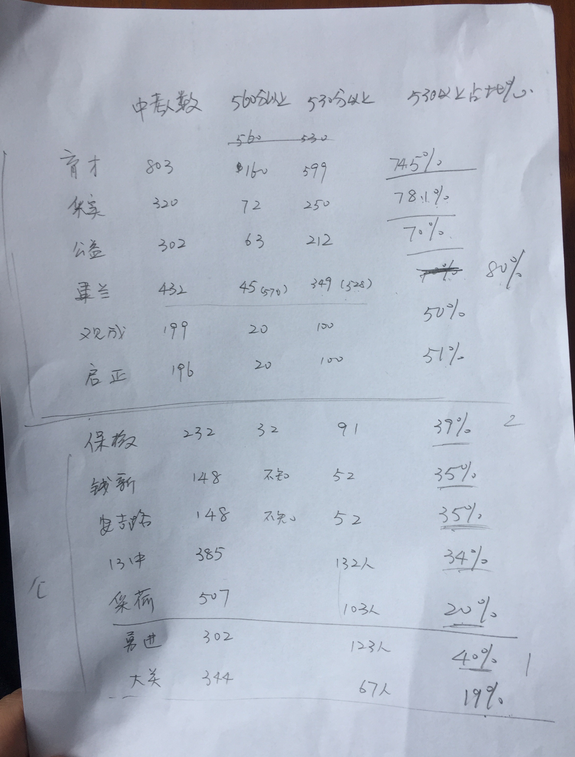 中考人数 560分以上 530分以上 530以上占比%.
560 530
育才 803 160 599 74.5%
保实 320 72 250 78.1%
公益 302 63 212 70%
翠兰 432 45(570) 349(528) 80%
观成 199 20 100 50%
启正 196 20 100 51%
保椒 232 32 91 39% 2
钱新 148 不知 52 35%
安吉路 148 不知 52 35%
13中 385 132人 34%
采荷 507 103人 20%
勇进 302 123人 40% 1
大关 344 67人 19%